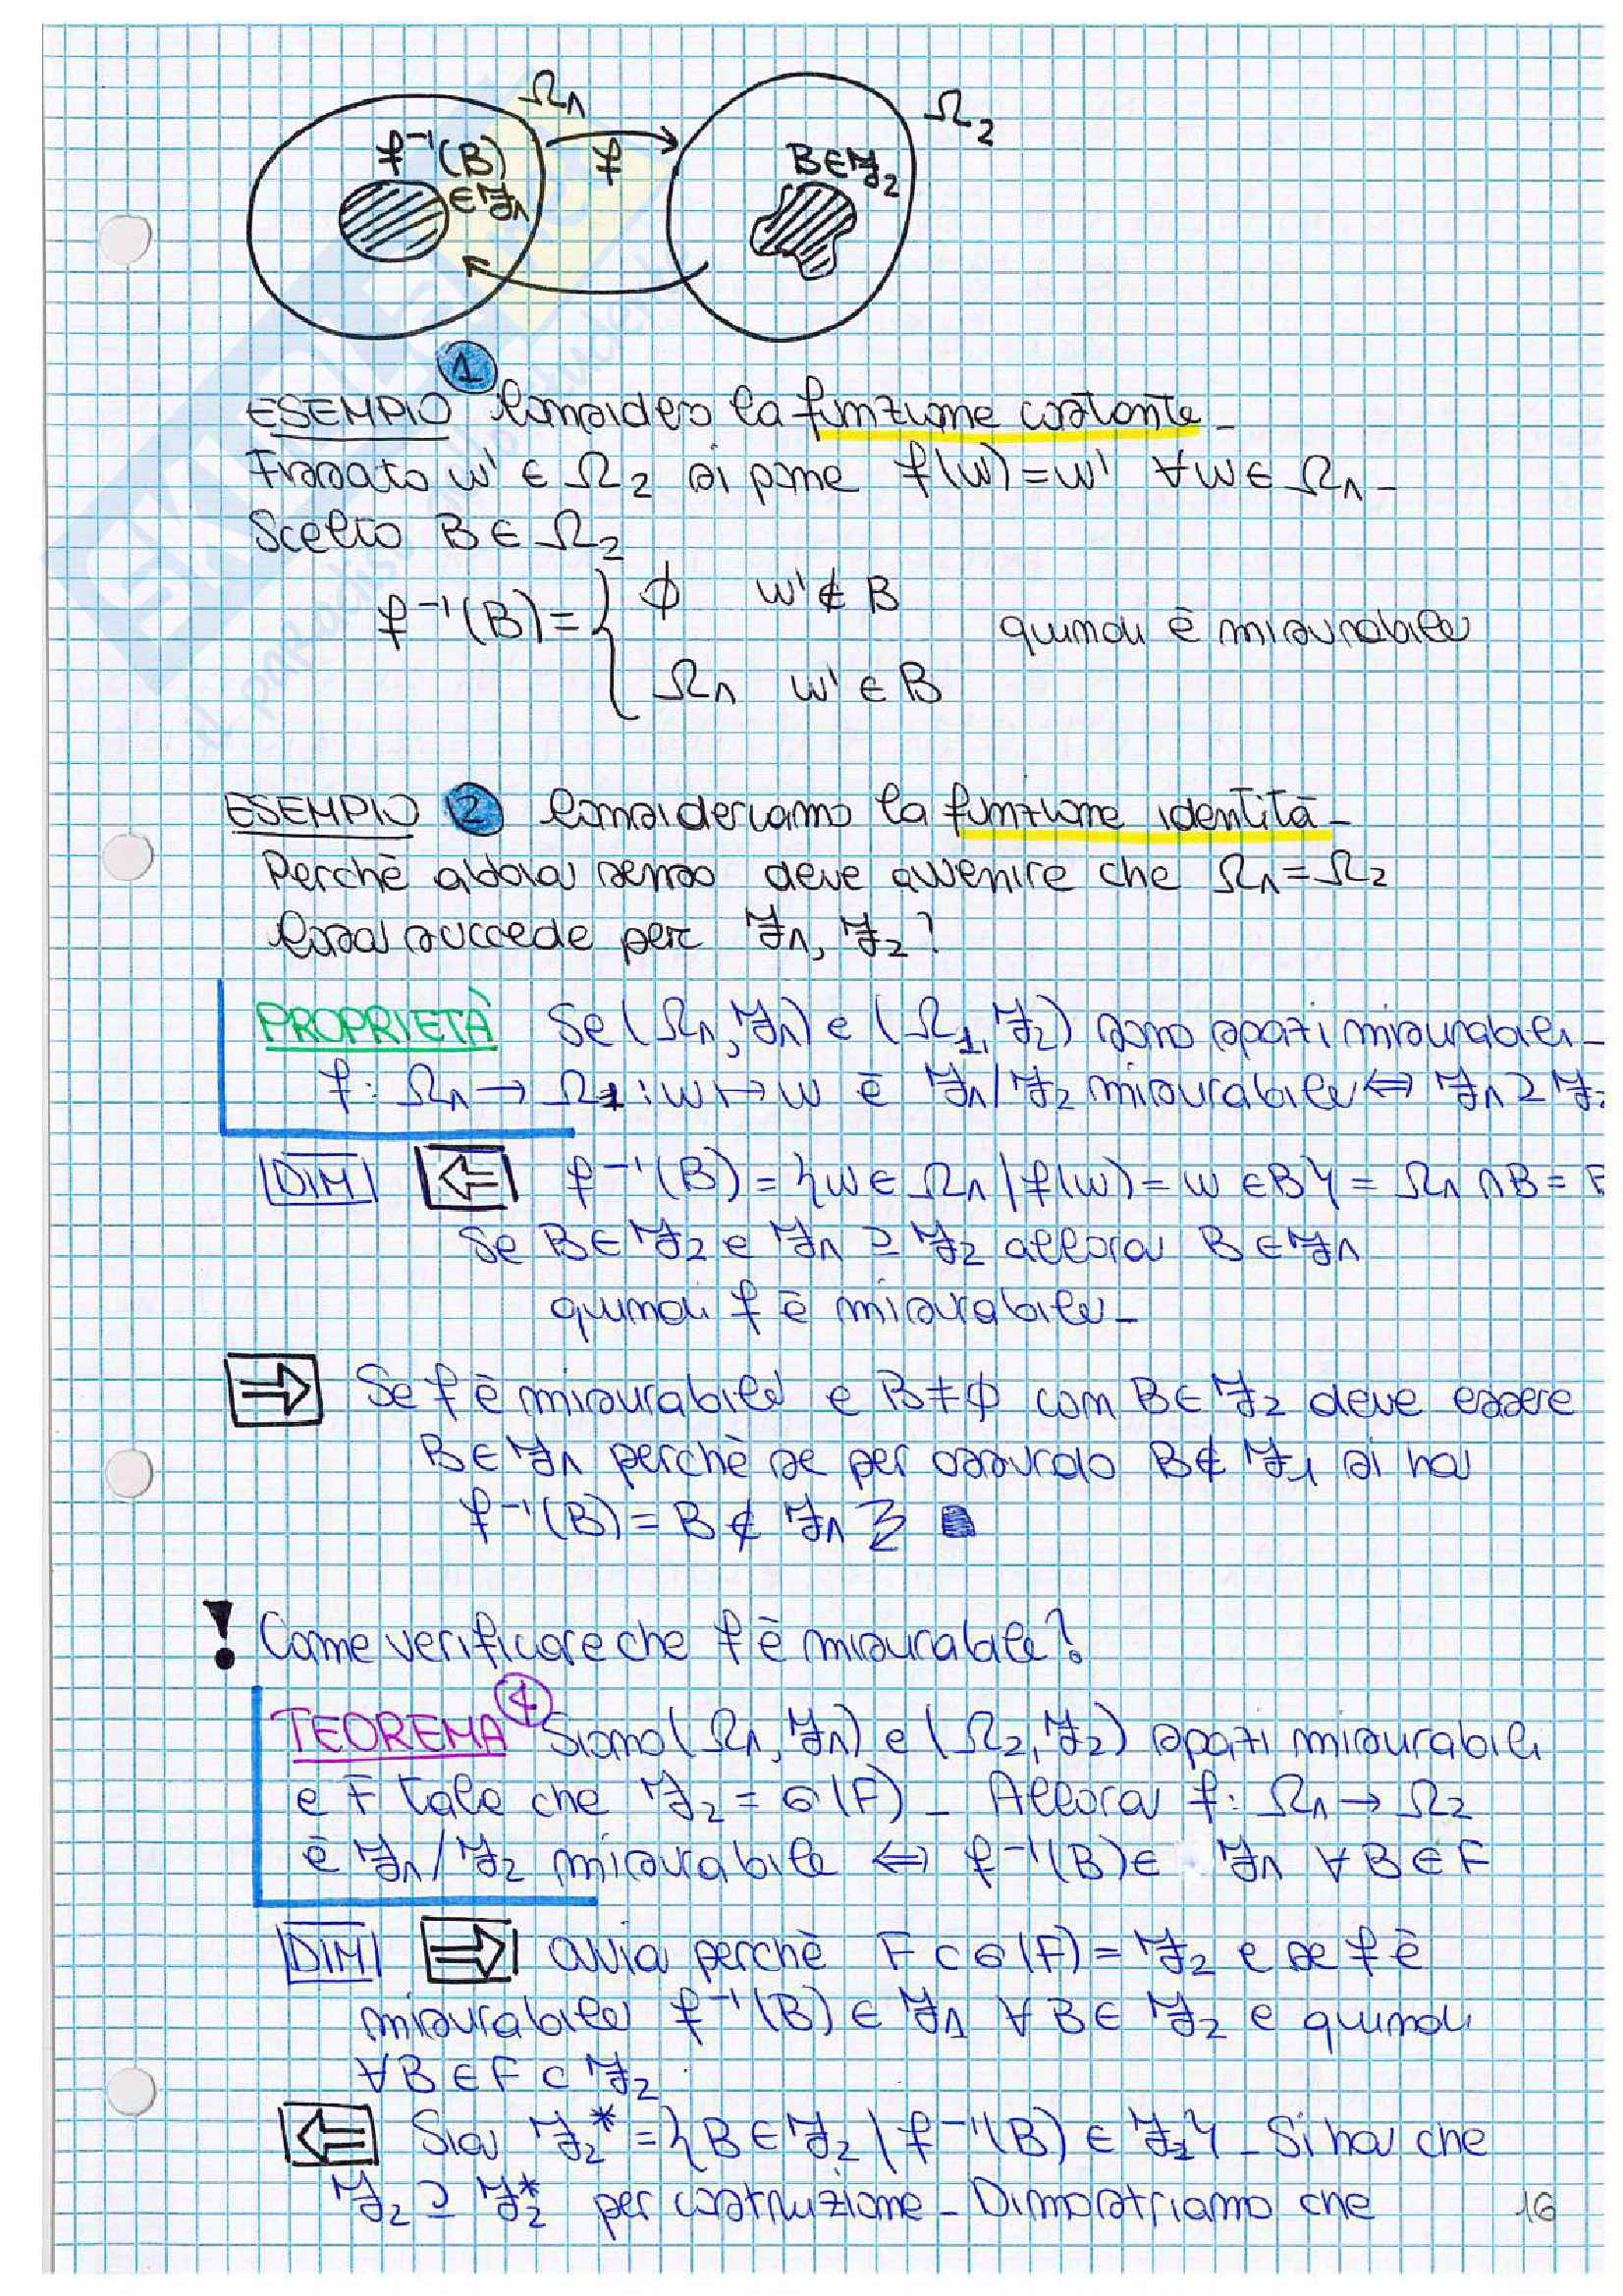 Ω₁
f⁻¹(B)
∈ℱ₁
f
B∈ℱ₂
Ω₂
ESEMPIO 1 Considero la funzione costante_
Fissato w' ∈ Ω₂ si pone f(w)=w' ∀w∈Ω₁_
Scelto B∈Ω₂
f⁻¹(B)={ ∅ w'∉B
quindi è misurabile
Ω₁ w'∈B
ESEMPIO 2 Consideriamo la funzione identità_
Perchè abbia senso deve avvenire che Ω₁=Ω₂
Cosa succede per ℱ₁, ℱ₂?
PROPRIETÀ Se (Ω₁,ℱ₁) e (Ω₁,ℱ₂) sono spazi misurabili_
f: Ω₁→Ω₁:w↦w è ℱ₁/ℱ₂ misurabile⇔ℱ₁⊇ℱ₂
DIM ⇐ f⁻¹(B)={w∈Ω₁|f(w)=w∈B}=Ω₁∩B=B
Se B∈ℱ₂ e ℱ₁⊇ℱ₂ allora B∈ℱ₁
quindi f è misurabile_
⇒ Se f è misurabile e B≠∅ con B∈ℱ₂ deve essere
B∈ℱ₁ perchè se per assurdo B∉ℱ₁ si ha
f⁻¹(B)=B∉ℱ₁
! Come verificare che f è misurabile?
TEOREMA 4 Siano (Ω₁,ℱ₁) e (Ω₂,ℱ₂) spazi misurabili
e F tale che ℱ₂=σ(F)_ Allora f: Ω₁→Ω₂
è ℱ₁/ℱ₂ misurabile ⇔ f⁻¹(B)∈ℱ₁ ∀B∈F
DIM ⇒ ovvia perchè F⊂σ(F)=ℱ₂ e se f è
misurabile f⁻¹(B)∈ℱ₁ ∀B∈ℱ₂ e quindi
∀B∈F⊂ℱ₂
⇐ Sia ℱ₂*={B∈ℱ₂|f⁻¹(B)∈ℱ₁}_ Si ha che
ℱ₂⊇ℱ₂* per costruzione_ Dimostriamo che
16